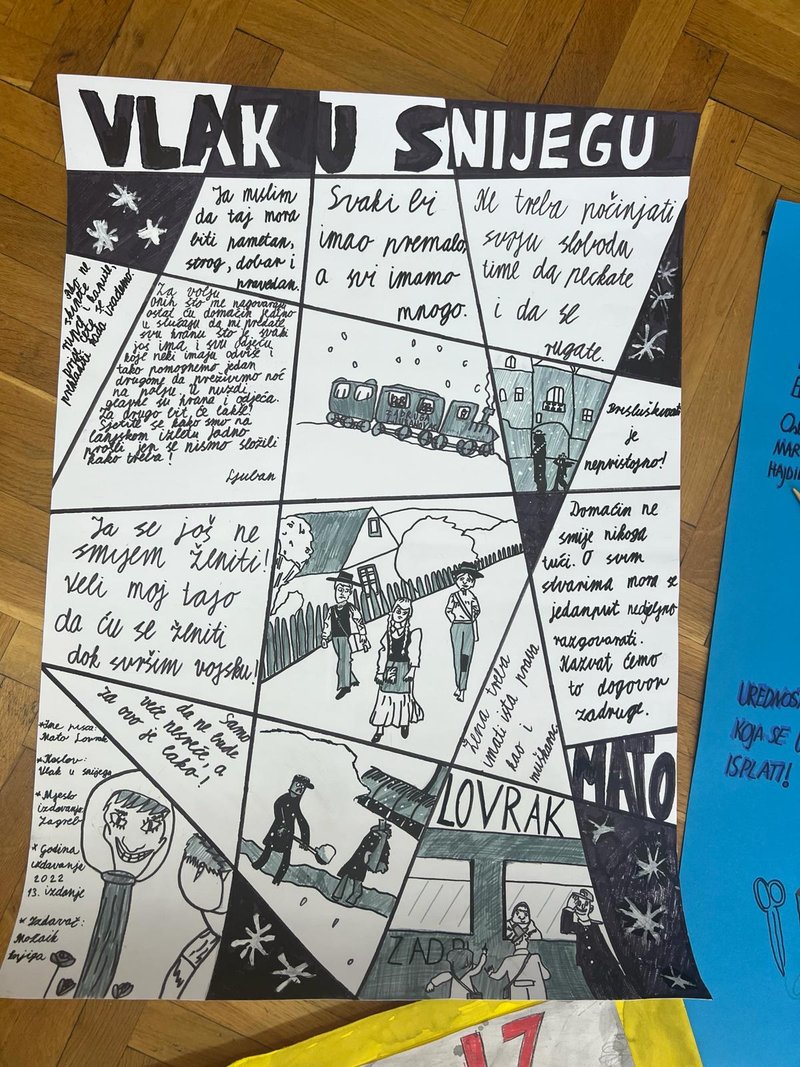 VLAK U SNIJEGU
Ja mislim
da taj mora
biti pametan,
strog, dobar i
pravedan.
Svaki bi
imao premalo,
a svi imamo
mnogo.
Ne treba počinjati
svoju slobodu
time da peckate
i da se
rugate.
Ako ne
skinete
kapute,
Za volju
onih što me nagovaraju
ostat ću domaćin jedino
u slučaju da mi predate
svu hranu što je svaki
još ima i svu odjeću,
koje neki imaju odviše i
tako pomognemo jedan
drugome da preživimo noć
na polju. U nuždi,
glavne su hrana i odjeća.
Za drugo bit će lakše!
Sjetite se kako smo na
lanjskom izletu jadno
prošli jer se nismo složili
kako treba!
Ljuban
ZADRUGA
Prisluškivati
je
nepristojno!
Ja se još ne
smijem ženiti!
Veli moj tajo
da ću se ženiti
dok svršim vojsku!
Domaćin ne
smije nikoga
tući. O svim
stvarima mora se
jedanput nedjeljno
razgovarati.
Nazvat ćemo
to dogovor
zadruge.
Žena treba
imati ista prava
kao i
muškarac.
Samo
da ne bude
veće nesreće, a
za ovo je
lako!
*Ime pisca:
Mato Lovrak
*Naslov:
Vlak u snijegu
*Mjesto
izdavanja:
Zagreb
*Godina
izdavanja
2022
13. izdanje
*Izdavač:
Mozaik
knjiga
MATO
LOVRAK
ZADR
MAR
HAJDI
UREDNOS
KOJA SE
ISPLATI!
17